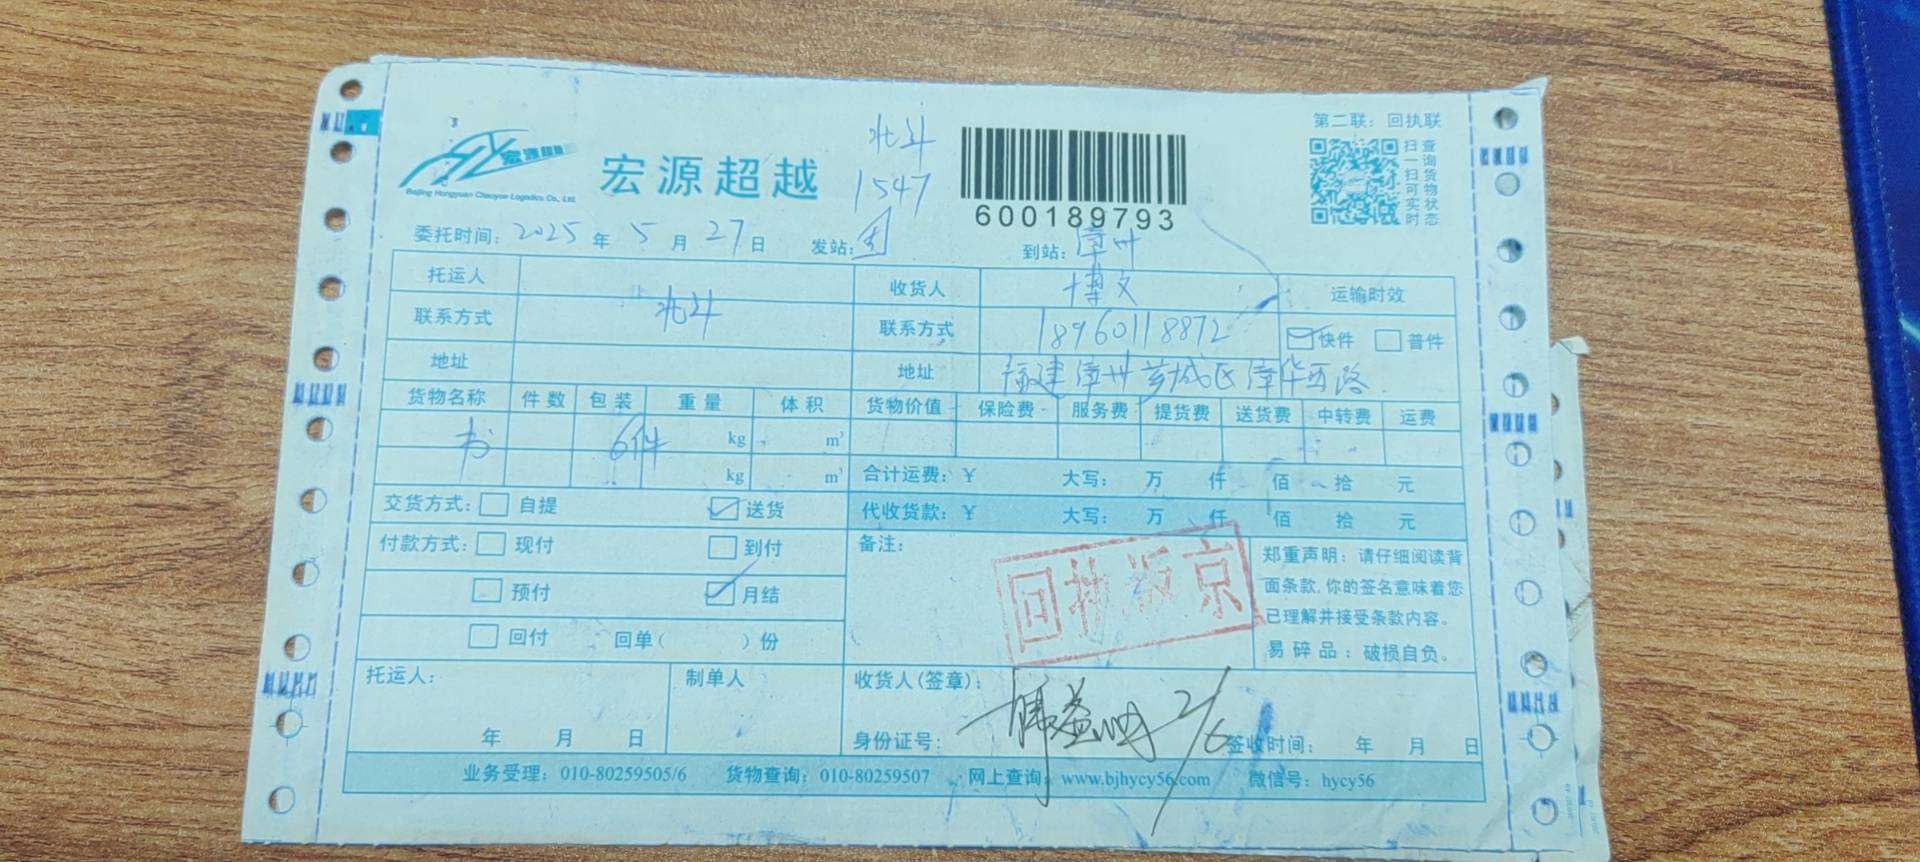 第二联：回执联
宏源超越
Beijing Hongyuan Chaoyue Logistics Co., Ltd.
宏源超越
北斗
1547
600189793
查询货物状态
扫一扫可实时
委托时间：2025年5月27日 发站： 到站：漳州
托运人 收货人 博文 运输时效
联系方式 北斗 联系方式 18960118872 快件 普件
地址 地址 福建漳州芗城区漳华西路
货物名称 件数 包装 重量 体积 货物价值 保险费 服务费 提货费 送货费 中转费 运费
书 6件 kg m³
kg m³ 合计运费：¥ 大写： 万 仟 佰 拾 元
交货方式： 自提 送货 代收货款：¥ 大写： 万 仟 佰 拾 元
付款方式： 现付 到付 备注：
预付 月结
回付 回单( )份
回执返京
郑重声明：请仔细阅读背
面条款,你的签名意味着您
已理解并接受条款内容。
易碎品：破损自负。
托运人： 制单人 收货人(签章)：
2/6
年 月 日 身份证号： 签收时间： 年 月 日
业务受理：010-80259505/6 货物查询：010-80259507 网上查询：www.bjhycy56.com 微信号：hycy56